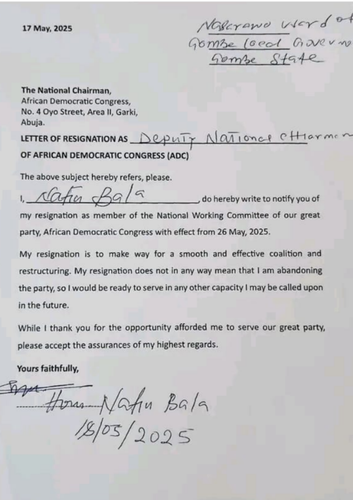 17 May, 2025
Nasarawo Ward of
Gombe Local Governm
Gombe State
The National Chairman,
African Democratic Congress,
No. 4 Oyo Street, Area II, Garki,
Abuja.
LETTER OF RESIGNATION AS Deputy National Chairman
OF AFRICAN DEMOCRATIC CONGRESS (ADC)
The above subject hereby refers, please.
I, Nafiu Bala, do hereby write to notify you of
my resignation as member of the National Working Committee of our great
party, African Democratic Congress with effect from 26 May, 2025.
My resignation is to make way for a smooth and effective coalition and
restructuring. My resignation does not in any way mean that I am abandoning
the party, so I would be ready to serve in any other capacity I may be called upon
in the future.
While I thank you for the opportunity afforded me to serve our great party,
please accept the assurances of my highest regards.
Yours faithfully,
Hon. Nafiu Bala
18/05/2025